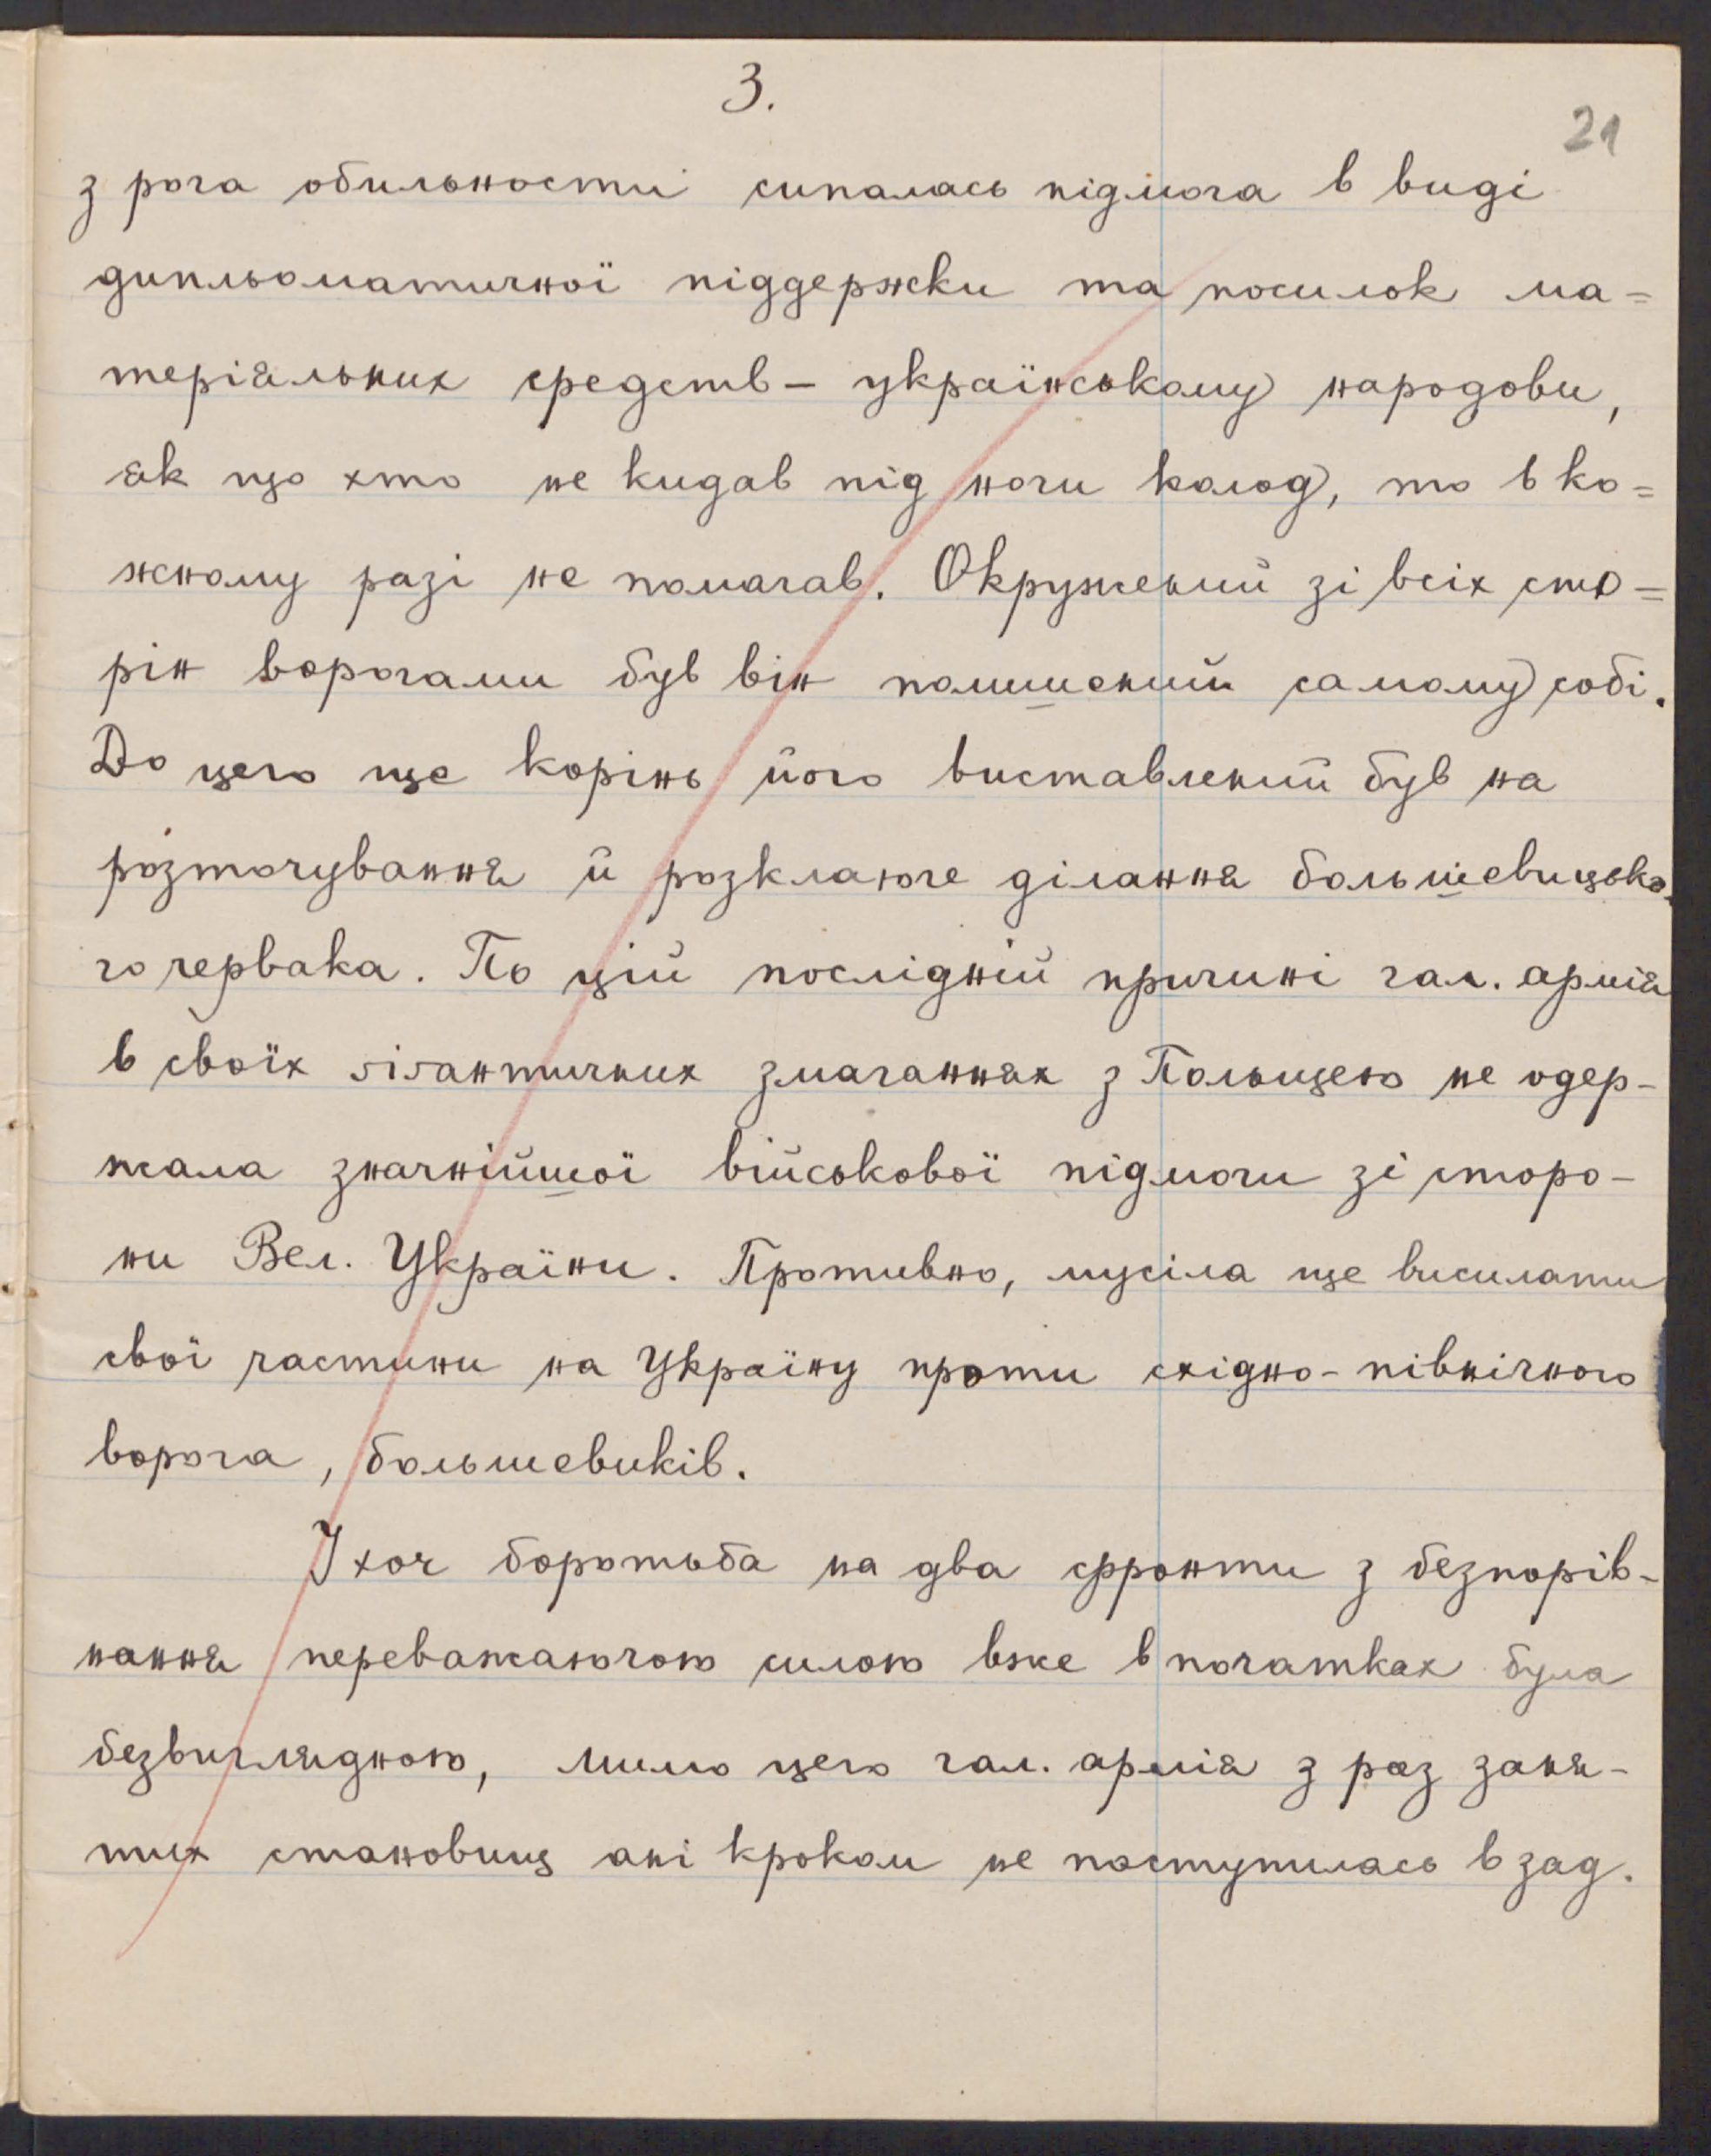 3.
21
з рога обильности сипалась підмога в виді
дипльоматичної піддержки та посилок ма=
теріяльних средств – українському народови,
як що хто не кидав під ноги колод, то в ко=
жному разі не помагав. Окружений зі всіх сто=
рін ворогами був він полишений самому собі.
До цего ще корінь його виставлений був на
розточування й розклаюче ділання большевицько-
го червака. По цій послідній причині гал. армія
в своїх ґіґантичних змаганнях з Польщею не одер-
жала значнійшої військової підмоги зі сторо-
ни Вел. України. Противно, мусіла ще висилати
свої частини на Україну проти східно-північного
ворога, большевиків.
І хоч боротьба на два фронти з безпорів-
нання переважаючою силою вже в початках була
безвиглядною, мимо цего гал. армія з раз заня-
тих становищ ані кроком не поступилась взад.